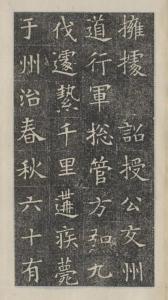 擁據 詔授公交州
道行軍総管方弘九
伐遽縶千里遘疾薨
于州治春秋六十有